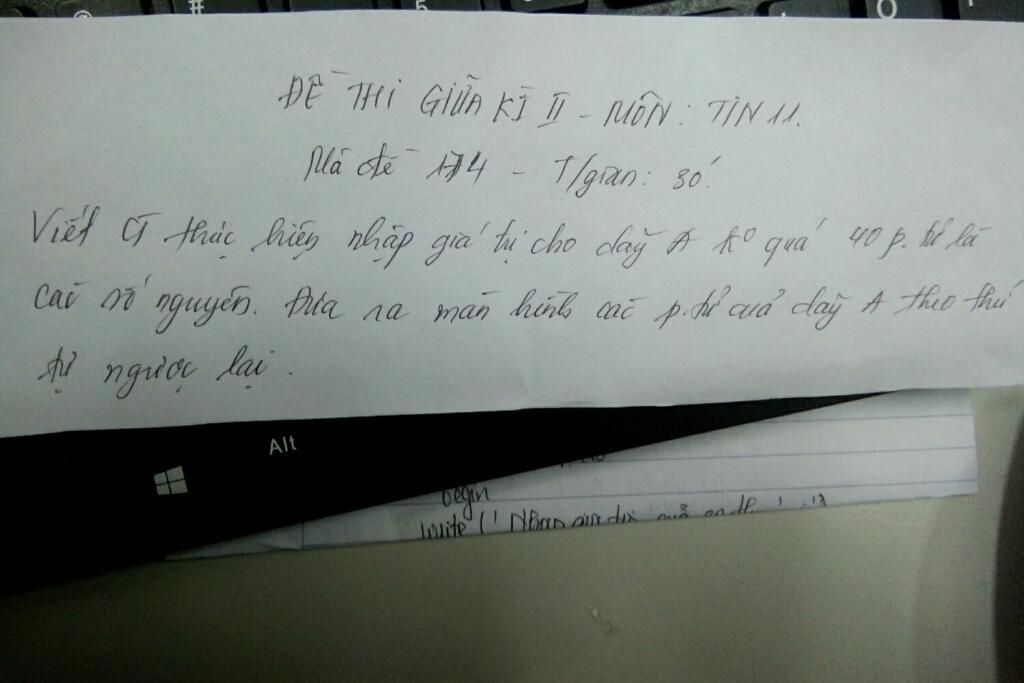 ĐỀ THI GIỮA KÌ II - MÔN: TIN 11.
Mã đề 174 - T/gian: 30'.
Viết CT thực hiện nhập giá trị cho dãy A ko quá 40 p.tử là
các số nguyên. Đưa ra màn hình các p.tử của dãy A theo thứ
tự ngược lại.
Alt
begin
write ('Nhap gia tri